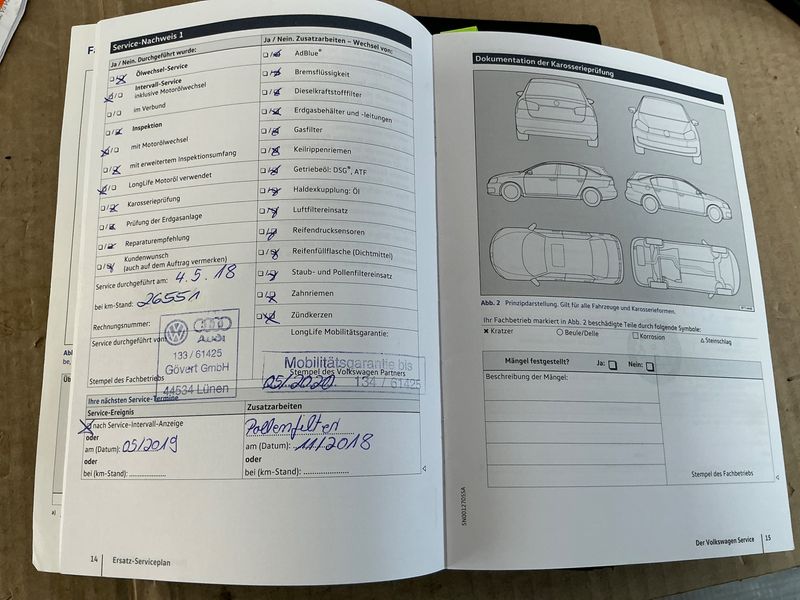 Service-Nachweis 1
Ja / Nein. Durchgeführt wurde:
Ölwechsel-Service
Intervall-Service
inklusive Motorölwechsel
im Verbund
Inspektion
mit Motorölwechsel
mit erweitertem Inspektionsumfang
LongLife Motoröl verwendet
Karosserieprüfung
Prüfung der Erdgasanlage
Reparaturempfehlung
Kundenwunsch
(auch auf dem Auftrag vermerken)
Service durchgeführt am: 4.5.18
bei km-Stand: 26551
Rechnungsnummer:
Service durchgeführt von:
Audi
133 / 61425
Gövert GmbH
44534 Lünen
Stempel des Fachbetriebs
Ja / Nein. Zusatzarbeiten – Wechsel von:
AdBlue®
Bremsflüssigkeit
Dieselkraftstofffilter
Erdgasbehälter und -leitungen
Gasfilter
Keilrippenriemen
Getriebeöl: DSG®, ATF
Haldexkupplung: Öl
Luftfiltereinsatz
Reifendrucksensoren
Reifenfüllflasche (Dichtmittel)
Staub- und Pollenfiltereinsatz
Zahnriemen
Zündkerzen
LongLife Mobilitätsgarantie:
Mobilitätsgarantie bis
Stempel des Volkswagen Partners
05/2020 134 / 61425
Ihre nächsten Service-Termine
Service-Ereignis
nach Service-Intervall-Anzeige
oder
am (Datum): 05/2019
oder
bei (km-Stand):
Zusatzarbeiten
Pollenfilter
am (Datum): 11/2018
oder
bei (km-Stand):
14 Ersatz-Serviceplan
Dokumentation der Karosserieprüfung
Abb. 2 Prinzipdarstellung. Gilt für alle Fahrzeuge und Karosserieformen.
Ihr Fachbetrieb markiert in Abb. 2 beschädigte Teile durch folgende Symbole:
× Kratzer ○ Beule/Delle □ Korrosion △ Steinschlag
Mängel festgestellt? Ja: Nein:
Beschreibung der Mängel:
Stempel des Fachbetriebs
5N0012705SA
Der Volkswagen Service 15